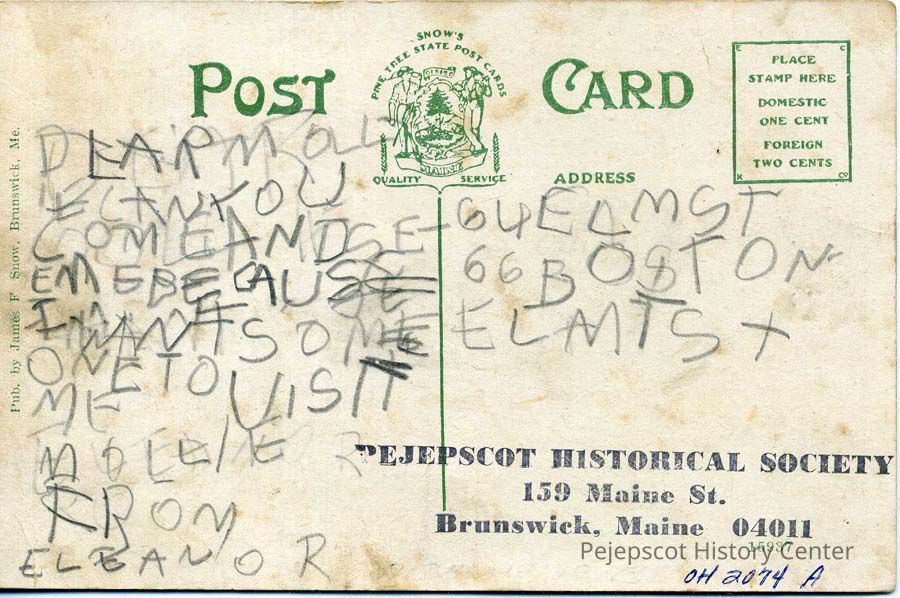 SNOW'S
PINE TREE STATE POST CARDS
POST CARD
MAINE
QUALITY SERVICE
ADDRESS
PLACE
STAMP HERE
DOMESTIC
ONE CENT
FOREIGN
TWO CENTS
Pub. by James F Snow, Brunswick, Me.
DEAR MOLL
CAN YOU
COME AND SE-
E ME BECAUSE
I WANT SOME
ONE TO VISIT
ME
MOLLIE
FROM
ELEANOR
64 ELM ST
66 BOSTON
ELM ST
PEJEPSCOT HISTORICAL SOCIETY
159 Maine St.
Brunswick, Maine 04011
15937
Pejepscot History Center
OH 2074 A